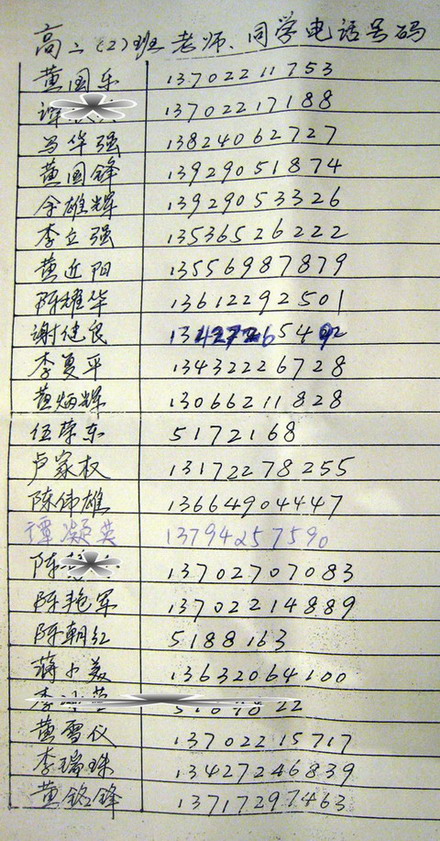 高二(2)班老师、同学电话号码
黄国乐 13702211753
谭 13702217188
马华强 13824062727
黄国锋 13929051874
余雄辉 13929053326
李立强 13536526222
黄近阳 13556987879
陈耀华 13612292501
谢健良
李夏平 13432226728
黄炳辉 13066211828
伍荣东 5172168
卢家权 13172278255
陈伟雄 13664904447
谭凝英 13794257590
陈 13702707083
陈艳军 13702214889
陈朝红 5188163
蒋小美 13632064100
李
黄雪仪 13702215717
李瑞珠 13427246839
黄铭锋 13717297463